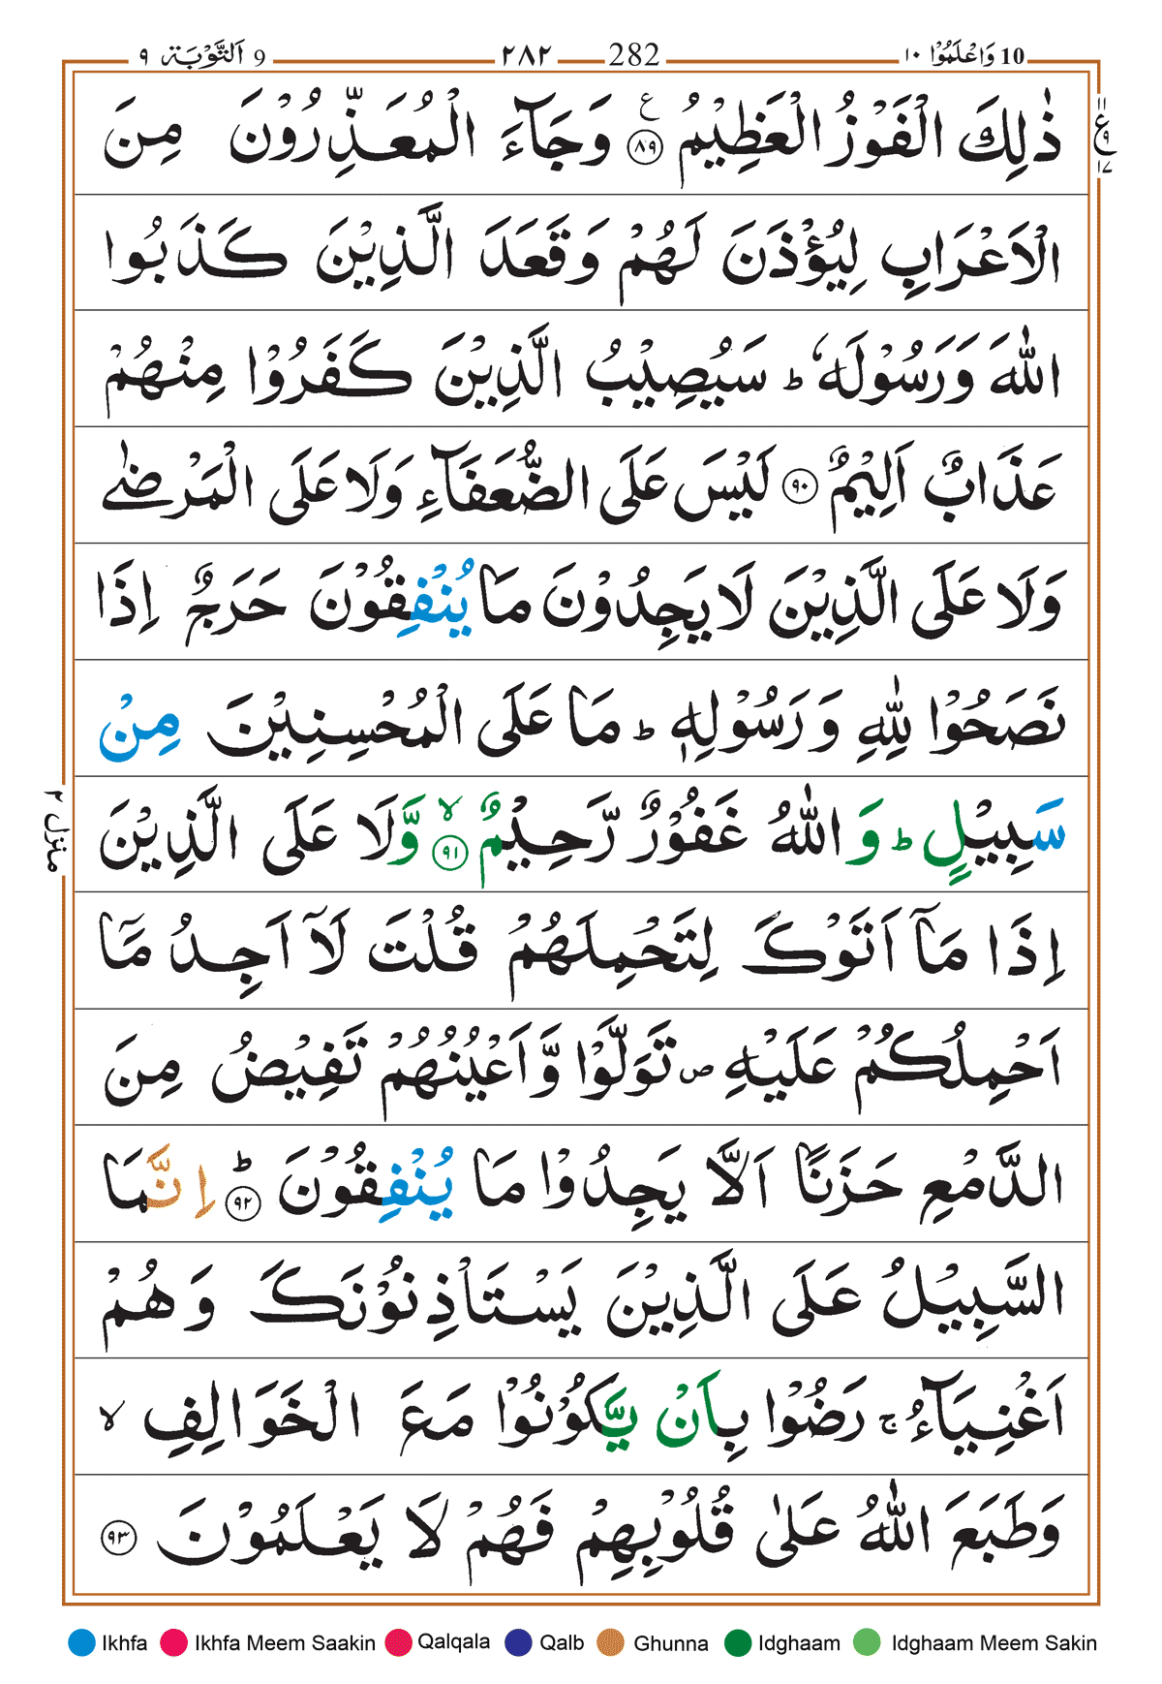 9 اَلتَّوْبَة ٩ ٢٨٢ 282 10 وَاعْلَمُوْا ١٠
ذٰلِكَ الْفَوْزُ الْعَظِيْمُ ﴿٨٩﴾ ع وَجَآءَ الْمُعَذِّرُوْنَ مِنَ
١١ ع ٩ ١٧
الْاَعْرَابِ لِيُؤْذَنَ لَهُمْ وَقَعَدَ الَّذِيْنَ كَذَبُوا
اللّٰهَ وَرَسُوْلَهٗ ؕ سَيُصِيْبُ الَّذِيْنَ كَفَرُوْا مِنْهُمْ
عَذَابٌ اَلِيْمٌ ﴿٩٠﴾ لَيْسَ عَلَى الضُّعَفَآءِ وَلَا عَلَى الْمَرْضٰى
وَلَا عَلَى الَّذِيْنَ لَا يَجِدُوْنَ مَا يُنْفِقُوْنَ حَرَجٌ اِذَا
نَصَحُوْا لِلّٰهِ وَرَسُوْلِهٖ ؕ مَا عَلَى الْمُحْسِنِيْنَ مِنْ
سَبِيْلٍ ؕ وَاللّٰهُ غَفُوْرٌ رَّحِيْمٌ ۙ﴿٩١﴾ وَّلَا عَلَى الَّذِيْنَ
منزل ٢
اِذَا مَآ اَتَوْكَ لِتَحْمِلَهُمْ قُلْتَ لَآ اَجِدُ مَآ
اَحْمِلُكُمْ عَلَيْهِ ص تَوَلَّوْا وَّاَعْيُنُهُمْ تَفِيْضُ مِنَ
الدَّمْعِ حَزَنًا اَلَّا يَجِدُوْا مَا يُنْفِقُوْنَ ؕ﴿٩٢﴾ اِنَّمَا
السَّبِيْلُ عَلَى الَّذِيْنَ يَسْتَاْذِنُوْنَكَ وَهُمْ
اَغْنِيَآءُ ۚ رَضُوْا بِاَنْ يَّكُوْنُوْا مَعَ الْخَوَالِفِ ۙ
وَطَبَعَ اللّٰهُ عَلٰى قُلُوْبِهِمْ فَهُمْ لَا يَعْلَمُوْنَ ﴿٩٣﴾
Ikhfa Ikhfa Meem Saakin Qalqala Qalb Ghunna Idghaam Idghaam Meem Sakin